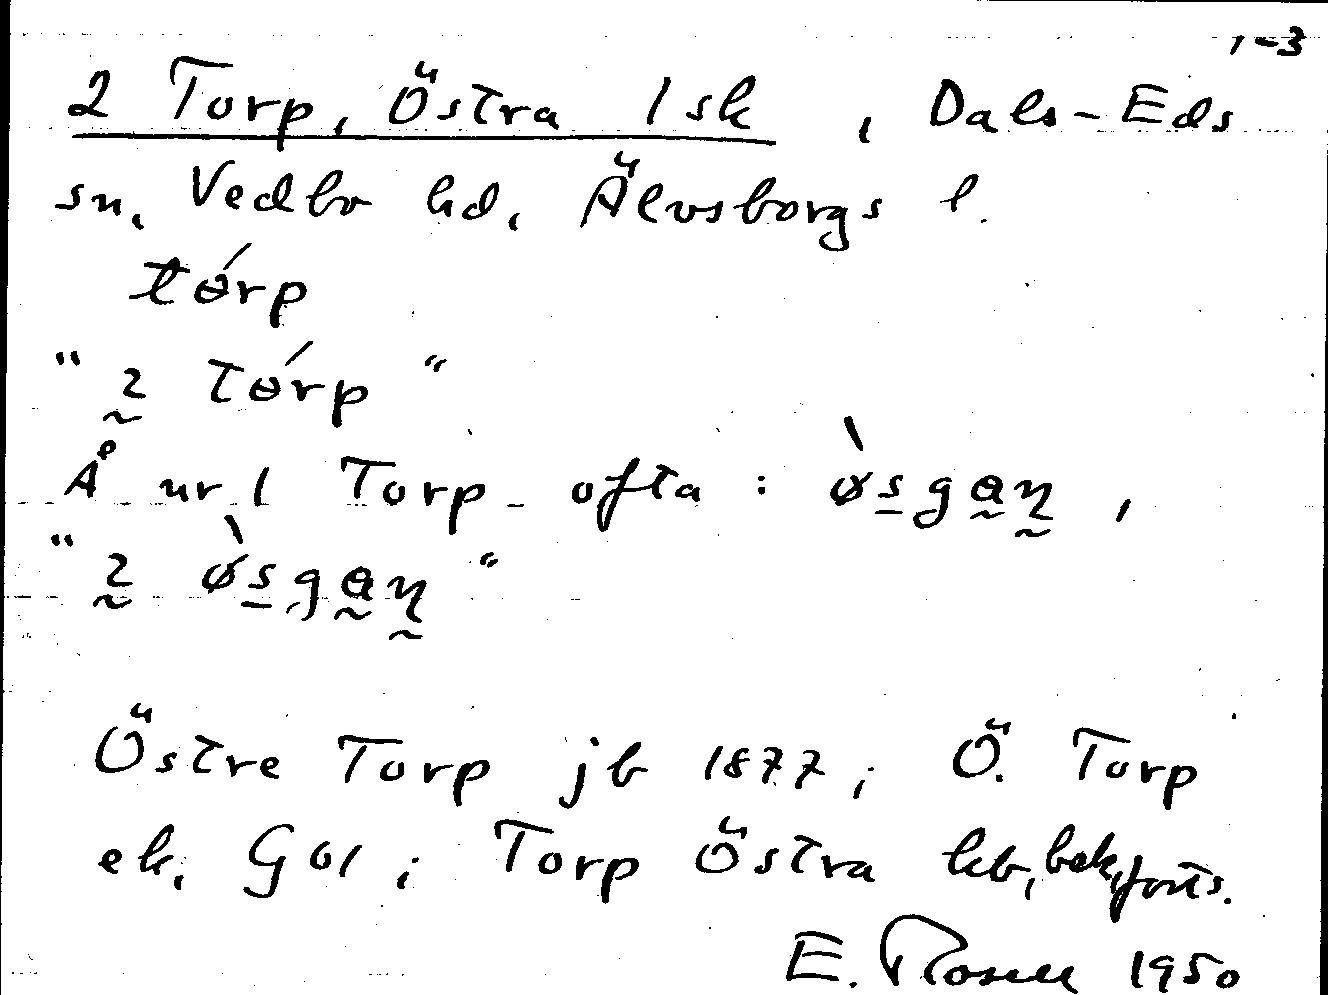 1-3
2 Torp, Östra 1 sk, Dals-Eds
sn, Vedbo hd, Älvsborgs l.
tórp
"2 tórp"
Å nr 1 Torp ofta: ø̀sgan,
"2 ø̀sgan"
Östre Torp jb 1877; Ö. Torp
ek, G 01; Torp Östra kb, bok, forts.
E. Rosell 1950